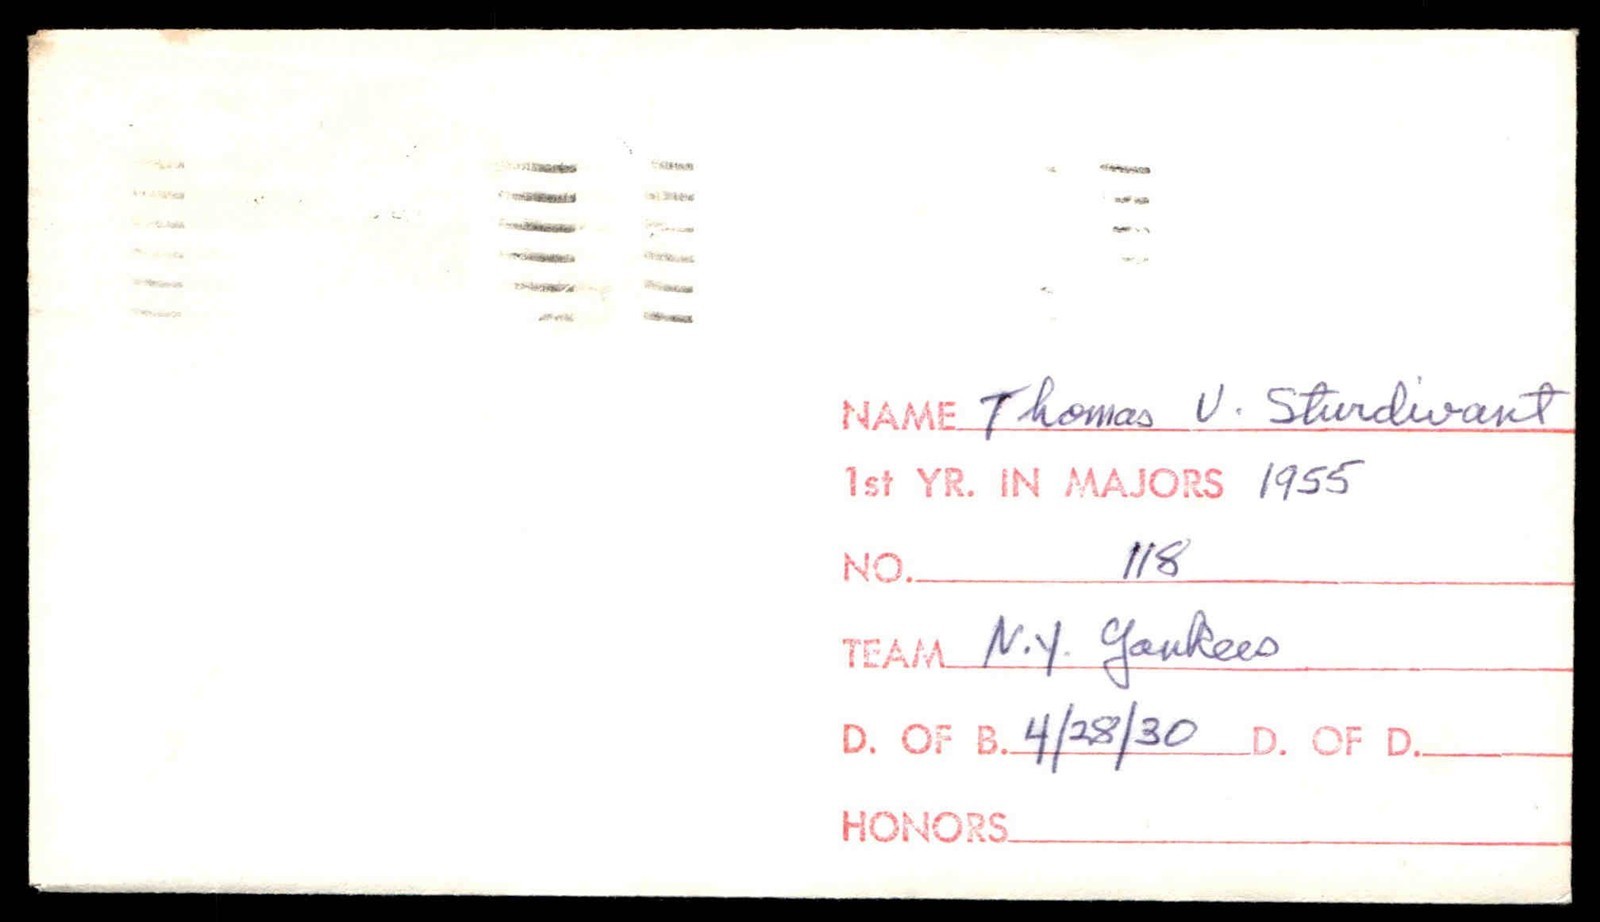 NAME Thomas V. Sturdivant
1st YR. IN MAJORS 1955
NO. 118
TEAM N.Y. Yankees
D. OF B. 4/28/30 D. OF D.
HONORS